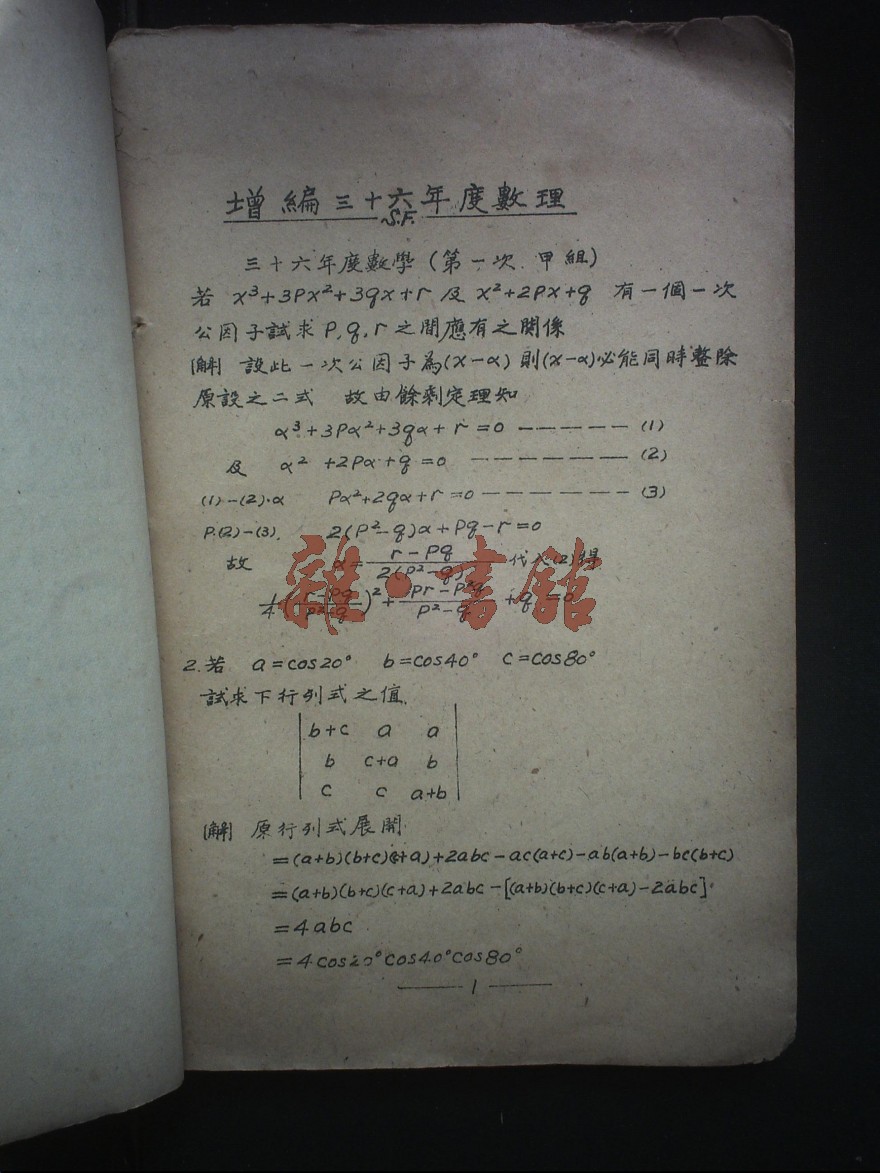 增編三十六年度數理
S.F.
三十六年度數學(第一次 甲組)
若 x³+3px²+3qx+r 及 x²+2px+q 有一個一次
公因子試求 P,q,r 之間應有之関係
[解] 設此一次公因子為(x-α) 則(x-α)必能同時整除
原設之二式 故由餘剩定理知
α³+3Pα²+3qα+r=0 ————— (1)
及 α²+2Pα+q=0 —————— (2)
(1)-(2)·α Pα²+2qα+r=0 —————— (3)
P.(2)-(3). 2(P²-q)α+Pq-r=0
故 α=\frac{r-Pq}{2(P²-q)} 代入(2)得
\frac{1}{4}(\frac{r-Pq}{P²-q})²+\frac{Pr-P²q}{P²-q}+q=0
2.若 a=cos20° b=cos40° c=cos80°
試求下行列式之值.
| b+c a a |
| b c+a b |
| c c a+b |
[解] 原行列式展開
=(a+b)(b+c)(c+a)+2abc-ac(a+c)-ab(a+b)-bc(b+c)
=(a+b)(b+c)(c+a)+2abc-[(a+b)(b+c)(c+a)-2abc]
=4abc
=4cos20°cos40°cos80°
—— 1 ——
雜·書館